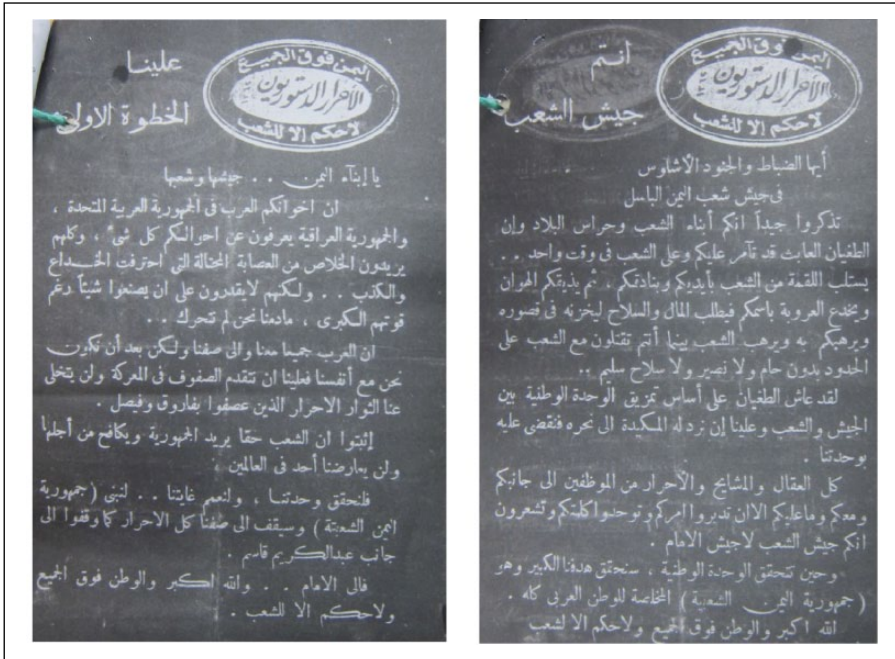 اليمن فوق الجميع
الأحرار الدستوريون
لا حكم إلا للشعب
انتم
جيش الشعب
أيها الضباط والجنود الأشاوس
فى جيش شعب اليمن الباسل
تذكروا جيداً انكم أبناء الشعب وحراس البلاد وإن
الطغيان العابث قد تآمر عليكم وعلى الشعب فى وقت واحد . .
يستلب اللقمة من الشعب بأيديكم وبنادقكم ، ثم يذيقكم الهوان
ويخدع العروبة باسمكم فيطلب المال والسلاح ليخزنه فى قصوره
ويرهبكم به ويرهب الشعب بينما أنتم تقتلون مع الشعب على
الحدود بدون حام ولا نصير ولا سلاح سليم ..
لقد عاش الطغيان على أساس تمزيق الوحدة الوطنية بين
الجيش والشعب وعلينا إن نرد له المكيدة الى نحره فنقضى عليه
بوحدتنا .
كل العقال والمشايخ والأحرار من الموظفين الى جانبكم
ومعكم وما عليكم الا ان تدبروا امركم وتوحدوا كلمتكم وتشعرون
انكم جيش الشعب لا جيش الامام .
وحين تتحقق الوحدة الوطنية ، سنحقق هدفنا الكبير وهو
( جمهورية اليمن الشعبية ) المخلصة للوطن العربى كله .
الله اكبر والوطن فوق الجميع ولا حكم الا لشعب
اليمن فوق الجميع
الأحرار الدستوريون
لا حكم إلا للشعب
علينا
الخطوة الاولى
يا إبنآء اليمن . . جيشها وشعبها
ان اخوانكم العرب فى الجمهورية العربية المتحدة ،
والجمهورية العراقية يعرفون عن احوالكم كل شىء ، وكلهم
يريدون الخلاص من العصابة المحتالة التى احترفت الخداع
والكذب . . ولكنهم لا يقدرون على ان يصنعوا شيئاً رغم
قوتهم الكبرى ، مادمنا نحن لم نتحرك ...
ان العرب جميعا معنا والى صفنا ولكن بعد أن نكون
نحن مع أنفسنا فعلينا ان نتقدم الصفوف فى المعركة ولن يتخلى
عنا الثوار الاحرار الذين عصفوا بفاروق وفيصل .
إثبتوا ان الشعب حقا يريد الجمهورية ويكافح من أجلها
ولن يعارضنا أحد فى العالمين .
فلنحقق وحدتنا ، ولنعمم غايتنا . . لنبنى ( جمهورية
اليمن الشعبية ) وسيقف الى صفنا كل الاحرار كما وقفوا الى
جانب عبدالكريم قاسم .
فالى الامام . . والله اكبر والوطن فوق الجميع
ولا حكم الا للشعب .